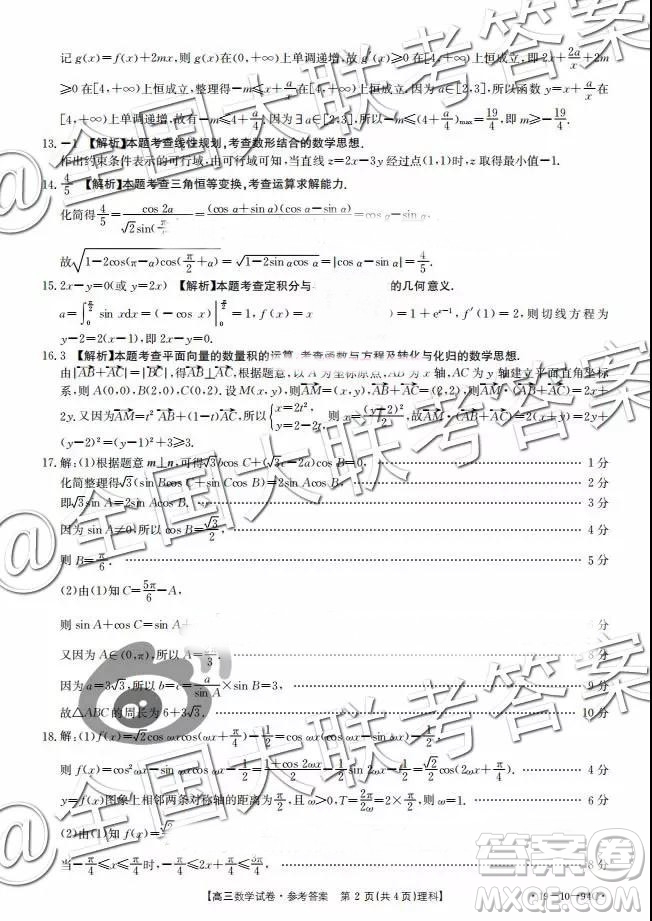 记 g(x)=f(x)+2mx,则 g(x)在(0,+∞)上单调递增,故 g′(x)≥0 在[4,+∞)上恒成立,即 2x+2a/x+2m
≥0 在[4,+∞)上恒成立,整理得-m≤x+a/x 在[4,+∞)上恒成立,因为 a∈[2,3],所以函数 y=x+a/x
上单调递增,故有-m≤4+a/4,因为∃a∈[2,3],所以-m≤(4+a/4)max=19/4,即 m≥-19/4.
13.-1 【解析】本题考查线性规划,考查数形结合的数学思想.
作出约束条件表示的可行域,由可行域可知,当直线 z=2x-3y 经过点(1,1)时,z 取得最小值-1.
14.4/5 【解析】本题考查三角恒等变换,考查运算求解能力.
化简得 4/5=cos 2α/√2sin(π =(cos α+sin α)(cos α-sin α) =cos α-sin α,
故√1-2cos(π-α)cos(π/2+α)=√1-2sin αcos α=|cos α-sin α|=4/5.
15.2x-y=0(或 y=2x) 【解析】本题考查定积分与 的几何意义.
a=∫0 π/2 sin xdx=(-cos x)|0 π/2=1,f(x) )=1+e^(x-1),f′(1)=2,则切线方程为
y-2=2(x-1),即 2x-y=0.
16.3 【解析】本题考查平面向量的数量积的运算,考查函数与方程及转化与化归的数学思想.
由|AB+AC|=|BC|,得 AB⊥AC,根据题意,以 A 为坐标原点,AB 为 x 轴,AC 为 y 轴建立平面直角坐标
系,则 A(0,0),B(2,0),C(0,2).设 M(x,y),则 AM=(x,y),AB+AC=(2,2),则 AM·(AB+AC)=2x+
2y.又因为 AM=t²AB+(1-t)AC,所以{x=2t², y=2-2t, 则 x=(y-2)²/2,故 AM·(AB+AC)=2x+2y=2y+
(y-2)²=(y-1)²+3≥3.
17.解:(1)根据题意 m⊥n,可得√3bcos C+(√3c-2a)cos B=0, 1 分
化简整理得√3(sin Bcos C+sin Ccos B)=2sin Acos B, 2 分
即√3sin A=2sin Acos B, 3 分
因为 sin A≠0,所以 cos B=√3/2, 4 分
则 B=π/6. 5 分
(2)由(1)知 C=5π/6-A,
则 sin A+cos C=sin A 分
又因为 A∈(0,π),所以 A= 3. 8 分
因为 a=3√3,所以 b=c=a/sin A×sin B=3, 9 分
故△ABC 的周长为 6+3√3. 10 分
18.解:(1)f(x)=√2cos ωxcos(ωx+π/4)-1/2=cos ωx(cos ωx-sin ωx)-1/2,
则 f(x)=cos²ωx-sin ωxcos ωx-1/2=1+cos 2ωx/2-1/2sin 2ωx-1/2=√2/2cos(2ωx+π/4). 4 分
y=f(x)图象上相邻两条对称轴的距离为π/2,且 ω>0,T=2π/2ω=2×π/2,所以 ω=1. 6 分
(2)由(1)知 f(x)=
当-π/4≤x≤π/4时,-π/4≤2x+π/4≤3π/4, 8 分
【高三数学试卷·参考答案 第 2 页(共 4 页)理科】
@全国大联考答案
答案卷